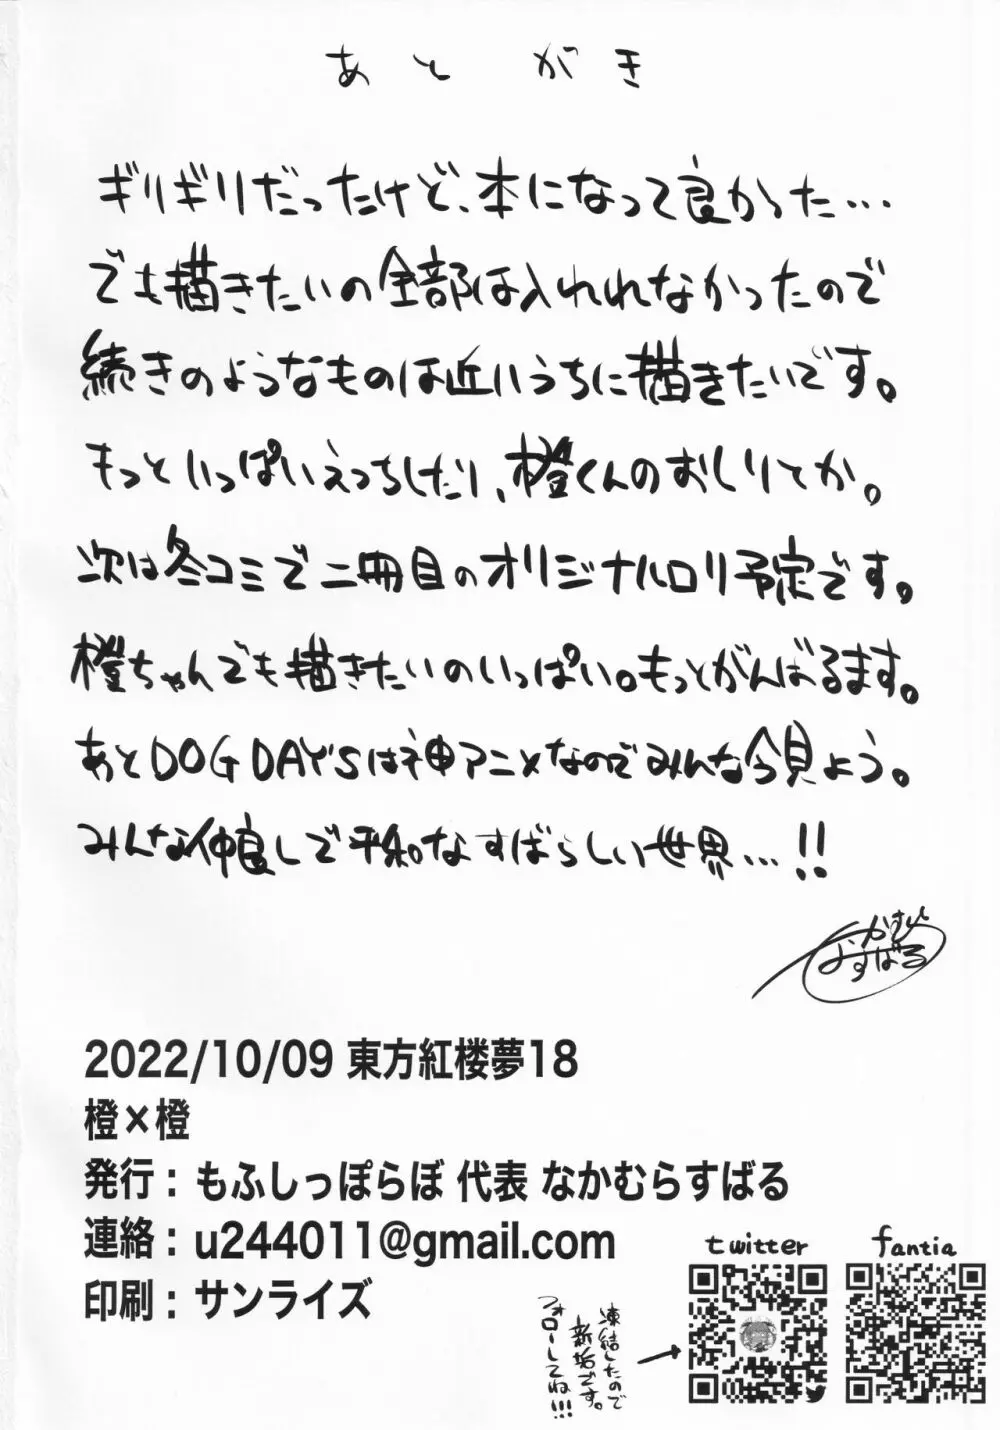 あとがき
ギリギリだったけど、本になって良かった…
でも描きたいの全部は入れれなかったので
続きのようなものは近いうちに描きたいです。
もっといっぱいえっちしたり、橙くんのおしりとか。
次は冬コミで二冊目のオリジナルロリ予定です。
橙ちゃんでも描きたいのいっぱい。もっとがんばるます。
あとDOG DAY'Sは神アニメなのでみんな今見よう。
みんな仲良しで平和なすばらしい世界…!!
なかむら
すばる
2022/10/09 東方紅楼夢18
橙×橙
発行：もふしっぽらぼ 代表 なかむらすばる
連絡：u244011@gmail.com
印刷：サンライズ
twitter
fantia
凍結したので
新垢です。
フォローしてね!!!